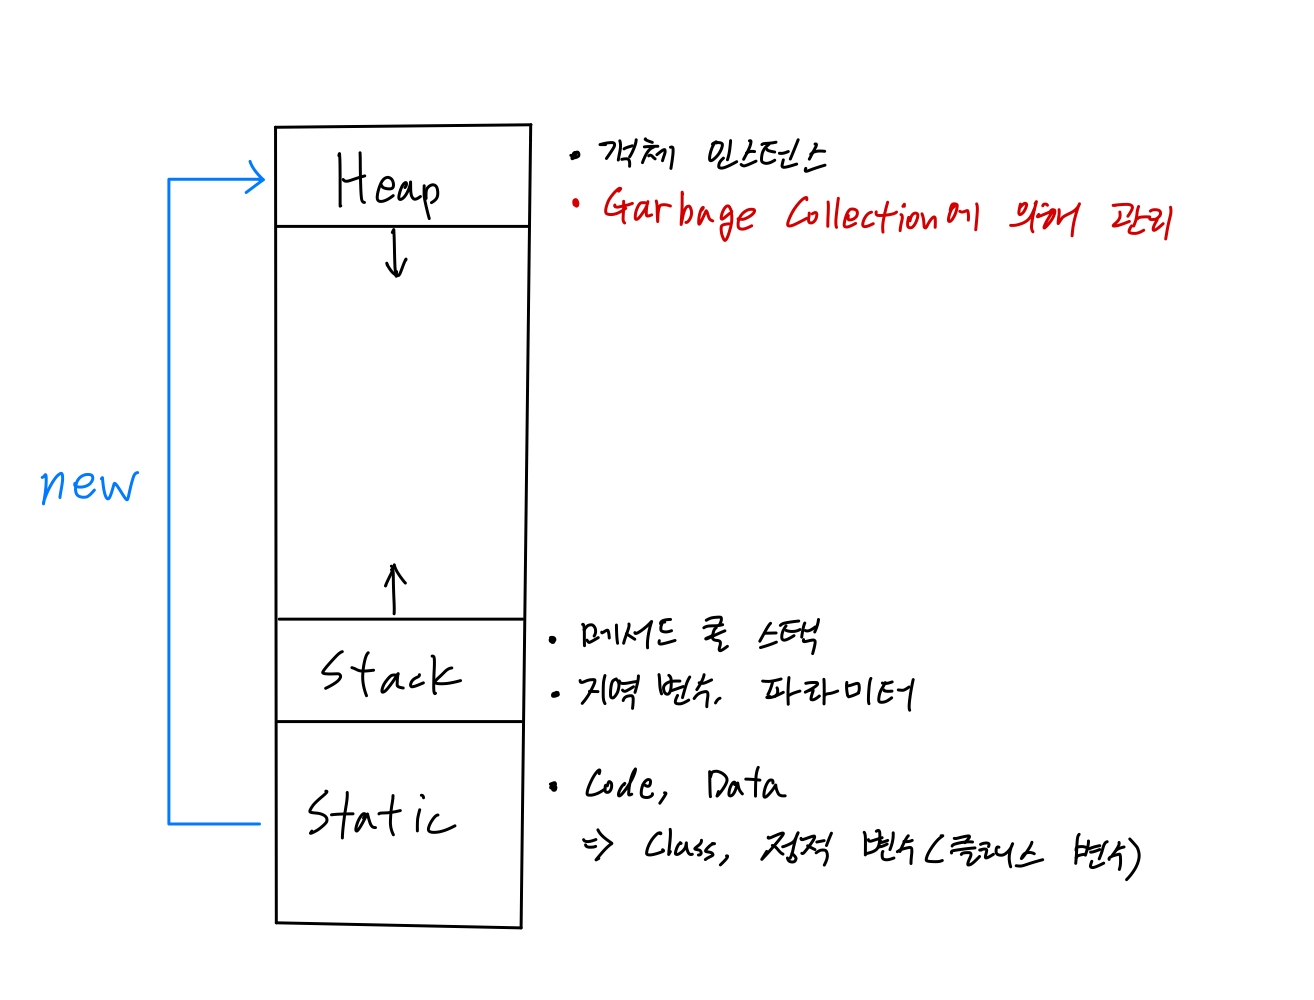 Heap
• 객체 인스턴스
• Garbage Collection에 의해 관리
new
Stack
• 메서드 콜 스택
• 지역 변수, 파라미터
Static
• Code, Data
⇒ Class, 정적 변수(클래스 변수)